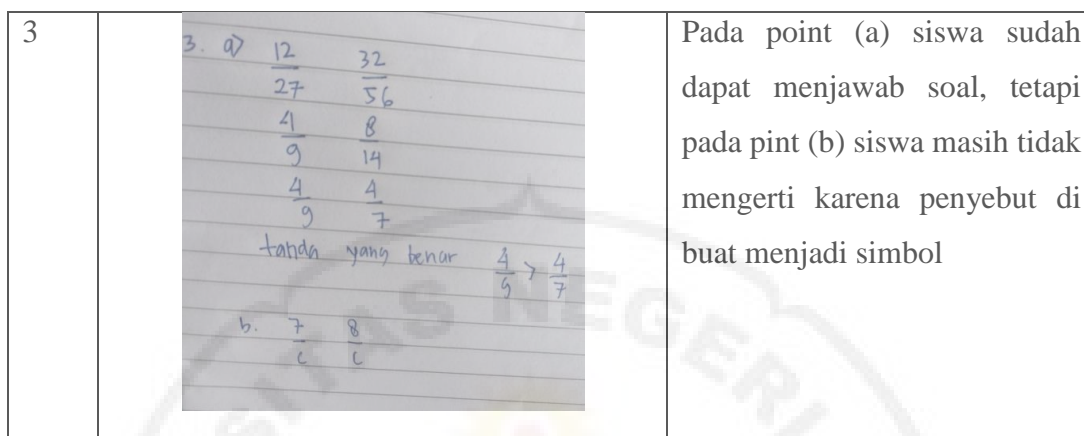 3
3. a) 12/27 32/56
4/9 8/14
4/9 4/7
tanda yang benar 4/9 > 4/7
b. 7/c 8/c
Pada point (a) siswa sudah
dapat menjawab soal, tetapi
pada pint (b) siswa masih tidak
mengerti karena penyebut di
buat menjadi simbol